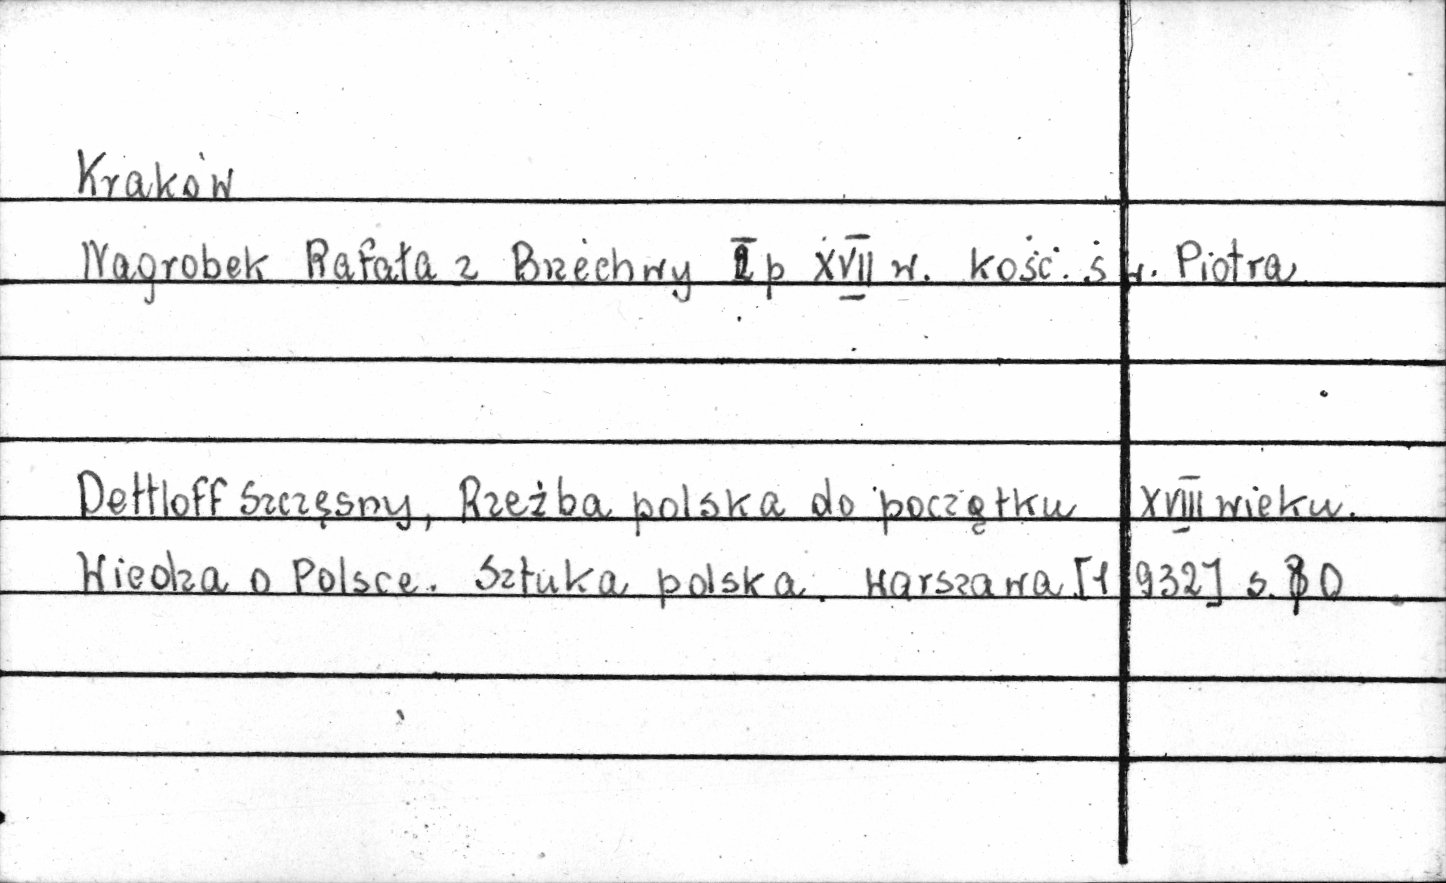 Kraków
Nagrobek Rafała z Brzéchwy I p XVII w. kość. św. Piotra
Dettloff Szczęsny, Rzeźba polska do początku XVIII wieku.
Wiedza o Polsce. Sztuka polska. Warszawa [1932] s.